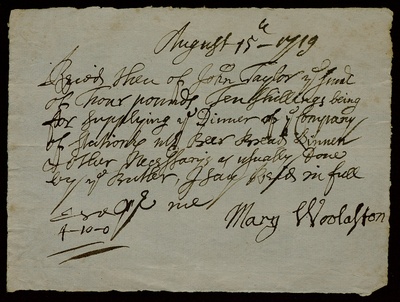 August 15th - 1719
Recied then of John Taylor ye sume
of four pounds Ten shillings being
for Supplying ye Dinner of ye Company
of Stationrs wth Beer Bread Linnen
& other Nessarys as usually Done
by ye Butler, I say Recd in full
pr me
4-10-0
Mary Woolaston